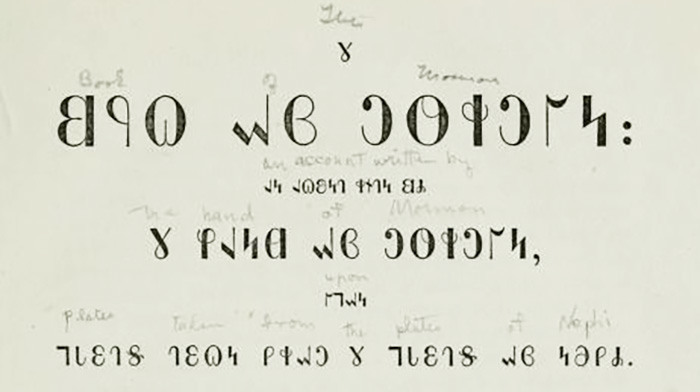 The
𐐜
Book of Mormon
𐐒𐐋𐐗 𐐉𐐚 𐐣𐐃𐐡𐐣𐐊𐐤:
an account written by
𐐰𐑌 𐐰𐐿𐐵𐑌𐐻 𐑉𐐮𐐻𐑌 𐐺𐐴
the hand of Mormon
𐑄 𐐸𐐰𐑌𐐼 𐐱𐑂 𐑋𐐬𐑉𐑋𐐲𐑌,
upon
𐐲𐐹𐐱𐑌
plates taken from the plates of Nephi
𐐹𐑊𐐩𐐻𐑅 𐐻𐐩𐐿𐑌 𐑁𐑉𐐱𐑋 𐑄 𐐹𐑊𐐩𐐻𐑅 𐐱𐑂 𐑌𐐨𐑁𐐴.